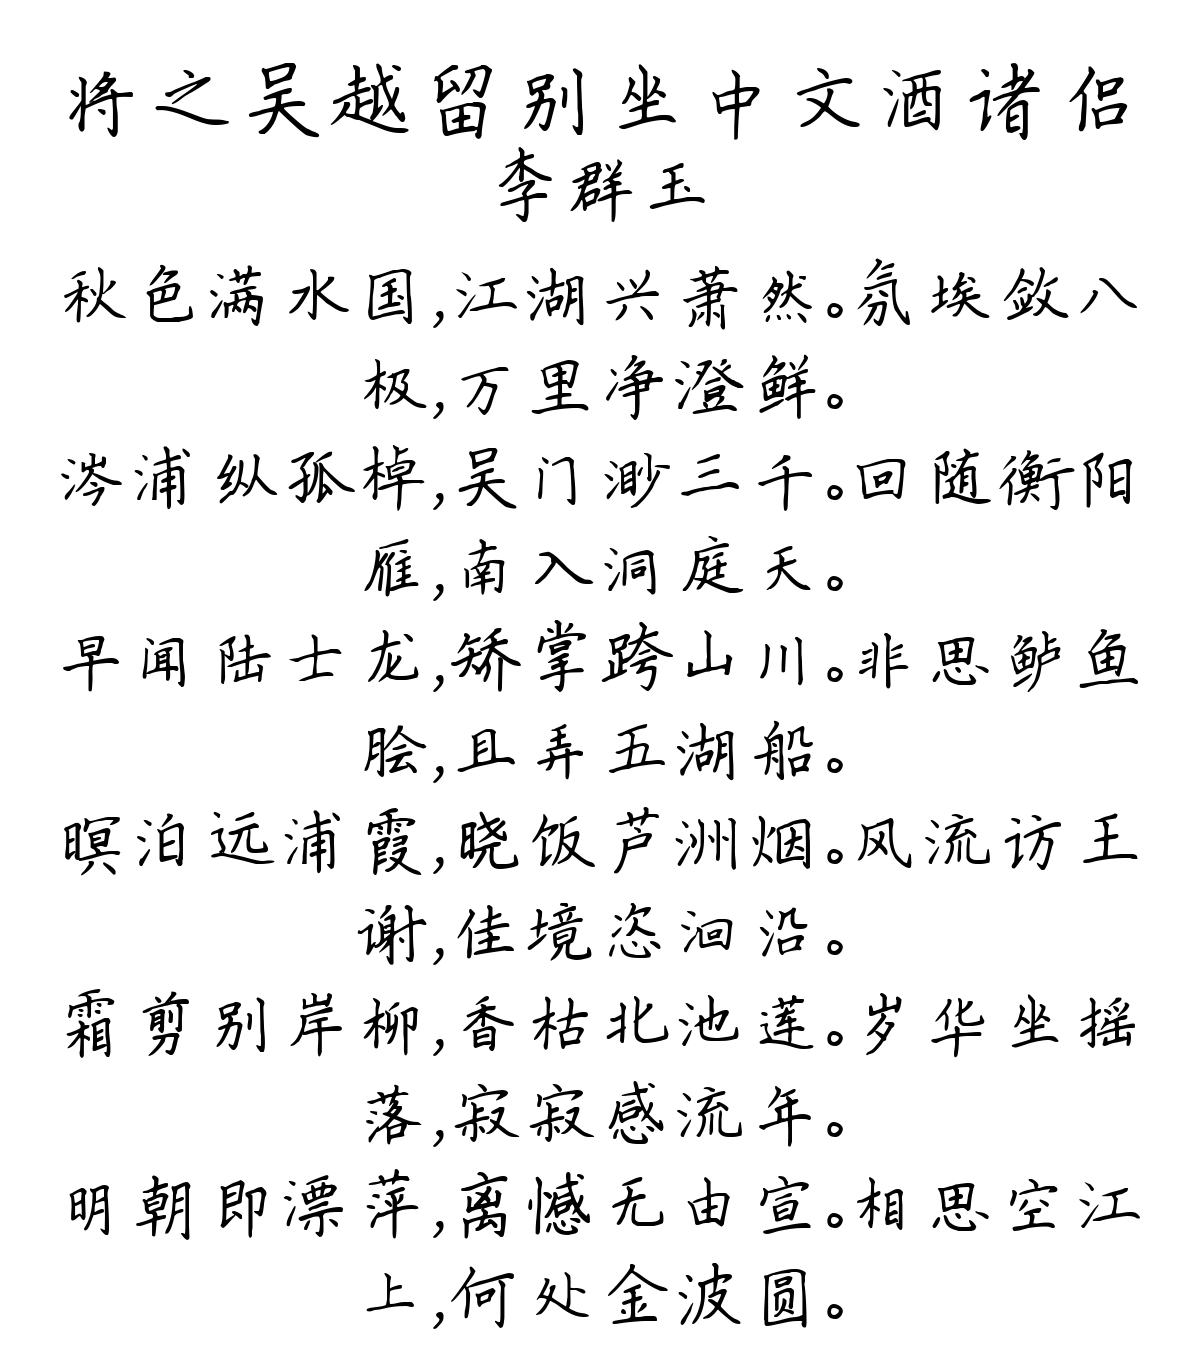 将之吴越留别坐中文酒诸侣
李群玉
秋色满水国,江湖兴萧然。氛埃敛八
极,万里净澄鲜。
涔浦纵孤棹,吴门渺三千。回随衡阳
雁,南入洞庭天。
早闻陆士龙,矫掌跨山川。非思鲈鱼
脍,且弄五湖船。
暝泊远浦霞,晓饭芦洲烟。风流访王
谢,佳境恣洄沿。
霜剪别岸柳,香枯北池莲。岁华坐摇
落,寂寂感流年。
明朝即漂萍,离憾无由宣。相思空江
上,何处金波圆。